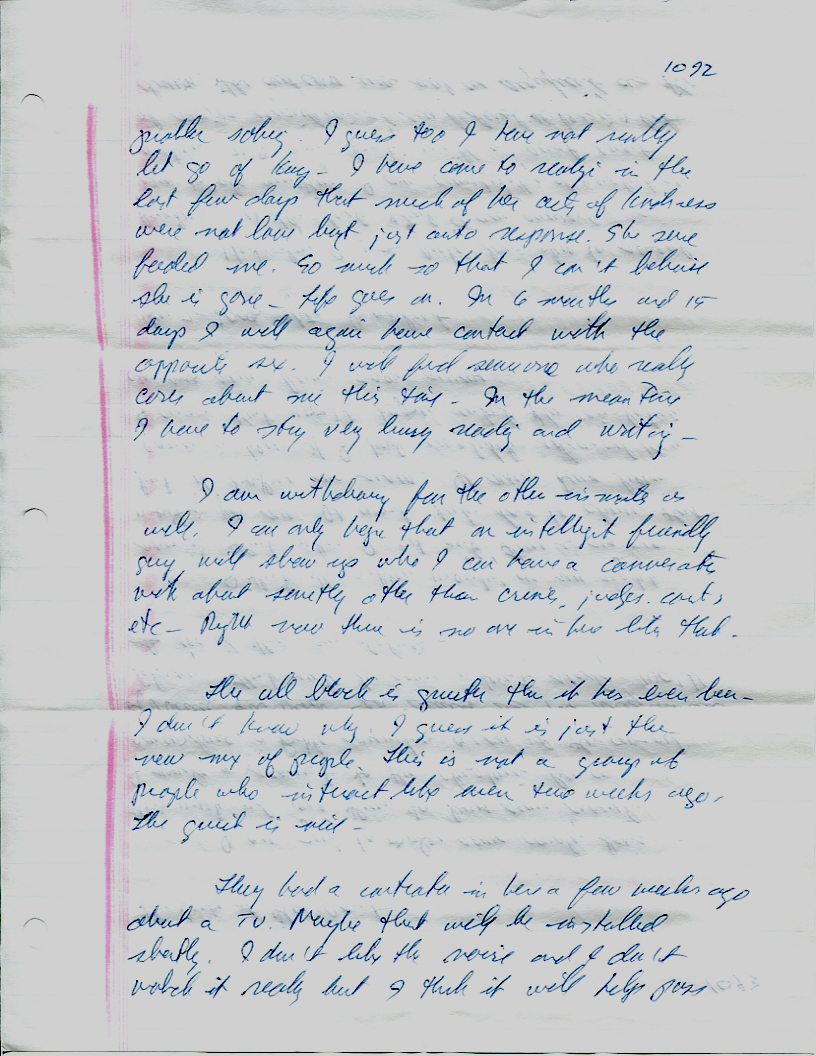 1092
problem solving. I guess too I have not really
let go of Kay - I have come to realize in the
last few days that much of her acts of kindness
were not love but just auto response. She sure
fooled me. So much so that I can't believe
she is gone - Life goes on. In 6 months and 15
days I will again have contact with the
opposite sex. I will find someone who really
cares about me this time - In the mean time
I have to stay very busy reading and writing -
I am withdrawing from the other inmates as
well. I can only hope that an intelligent friendly
guy will show up who I can have a conversation
with about something other than crimes, judges, courts
etc - Right now there is no one in here like that.
The cell block is quieter than it has ever been -
I don't know why. I guess it is just the
new mix of people. This is not a group of
people who interact like even two weeks ago.
The quiet is nice -
They had a contractor in here a few weeks ago
about a TV. Maybe that will be installed
shortly. I don't like the noise and I don't
watch it really but I think it will help pass